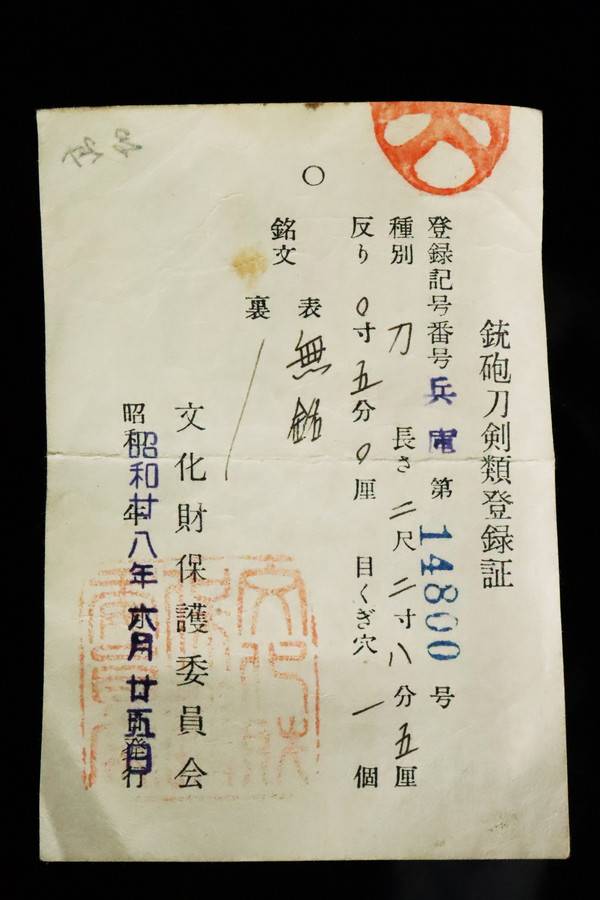 銃砲刀剣類登録証
登録記号番号 兵庫 第 14800 号
種別 刀 長さ 二尺二寸八分五厘
反り 0寸五分0厘 目くぎ穴 一個
銘文
表 無銘
裏
文化財保護委員会
昭和 年
昭和廿八年 六月 廿五日
発行